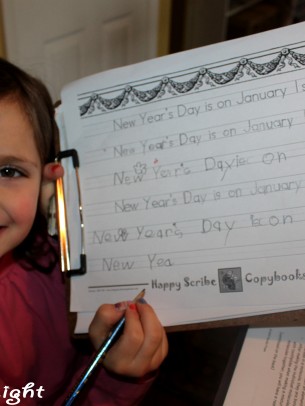 New Year's Day is on January 1s
New Year's Day is on January
New Year's Day is on
New Year's Day is on January
New Year's Day is on
New Yea
Happy Scribe Copybooks
ight